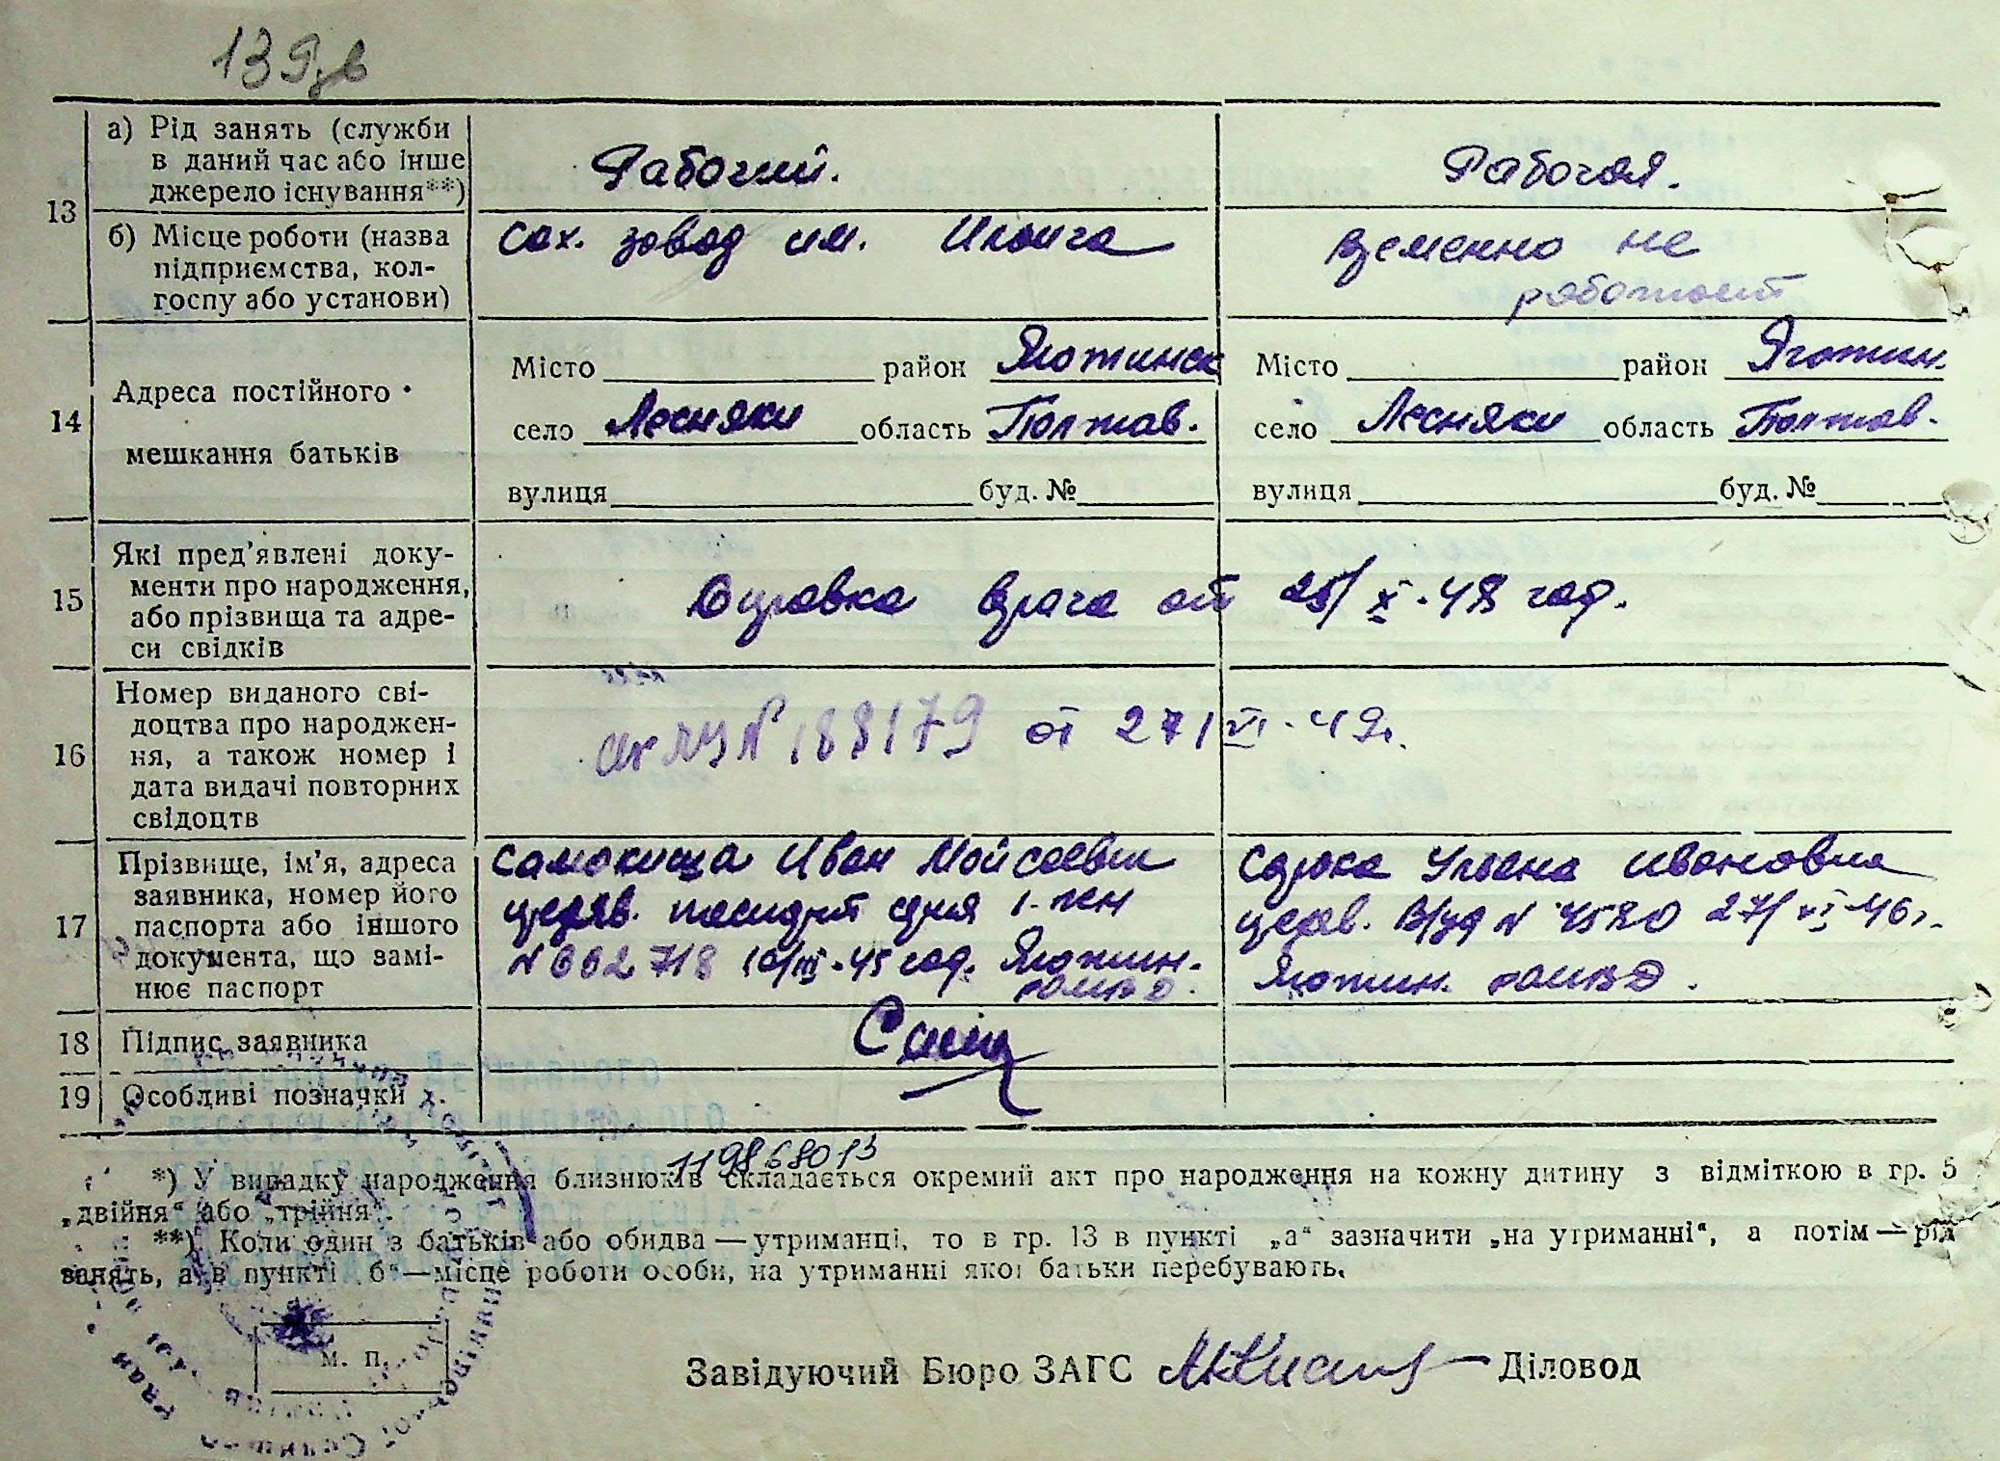 139
13
а) Рід занять (служби
в даний час або інше
джерело існування**)
Рабочий.
Рабочая.
б) Місце роботи (назва
підприємства, кол-
госпу або установи)
Сах. завод им. Ильича
Временно не
работает
14
Адреса постійного
мешкання батьків
Місто район Яготинск
село Лесняки область Полтав.
вулиця буд. №
Місто район Яготин.
село Лесняки область Полтав.
вулиця буд. №
15
Які пред'явлені доку-
менти про народження,
або прізвища та адре-
си свідків
Справка врача от 25/X-48 год.
16
Номер виданого сві-
доцтва про народжен-
ня, а також номер і
дата видачі повторних
свідоцтв
№ 188179 от 27/VI-49г.
17
Прізвище, ім'я, адреса
заявника, номер його
паспорта або іншого
документа, що замі-
нює паспорт
Самокиша Иван Мойсеевич
N 662718 10/III-45 год. Яготин.
Ульяна Ивановна
N 4580 27/VI-46г.
Яготин.
18
Підпис заявника
19
Особливі позначки
119868013
*) У випадку народження близнюків складається окремий акт про народження на кожну дитину з відміткою в гр. 5
„двійня“ або „трійня“.
**) Коли один з батьків або обидва — утриманці, то в гр. 13 в пункті „а“ зазначити „на утриманні“, а потім — рід
занять, а в пункті „б“ — місце роботи особи, на утриманні якої батьки перебувають.
м. п.
Завідуючий Бюро ЗАГС Діловод